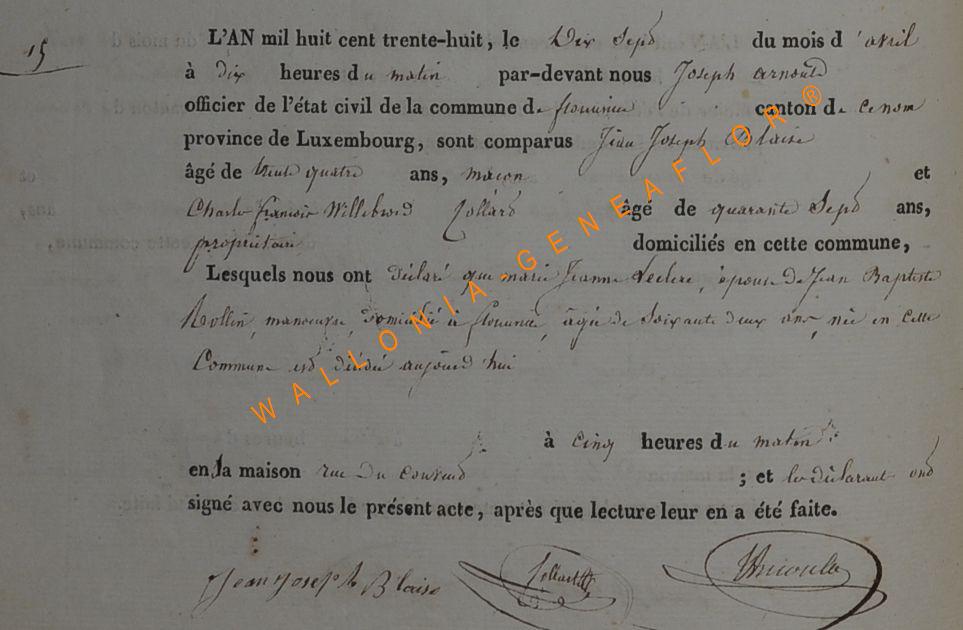 15
L'AN mil huit cent trente-huit, le Dix Sept du mois d'avril
à dix heures du matin par-devant nous Joseph arnould
officier de l'état civil de la commune de florenville canton de ce nom
province de Luxembourg, sont comparus Jean Joseph Blaise
âgé de trente quatre ans, maçon et
Charle françois Willebrord Collard âgé de quarante Sept ans,
propriétaire domiciliés en cette commune,
Lesquels nous ont déclaré que marie Jeanne Leclere, épouse de Jean Baptiste
Rollin, manoeuvre, domicilié à florenville, agée de Soixante deux ans, née en Cette
Commune est décédée aujourd'hui
à cinq heures du matin
en sa maison rue du couvend ; et les déclarant ont
signé avec nous le présent acte, après que lecture leur en a été faite.
Jean Joseph Blaise Collard
WALLONIA-GENEAFLOR®